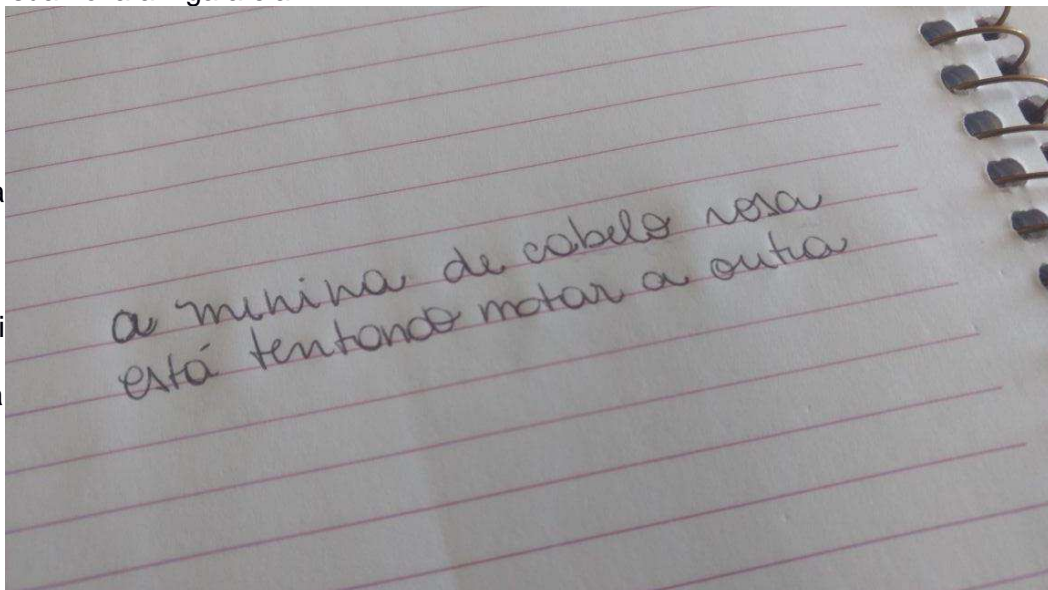 a minina de cabelo rosa
está tentando matar a outra